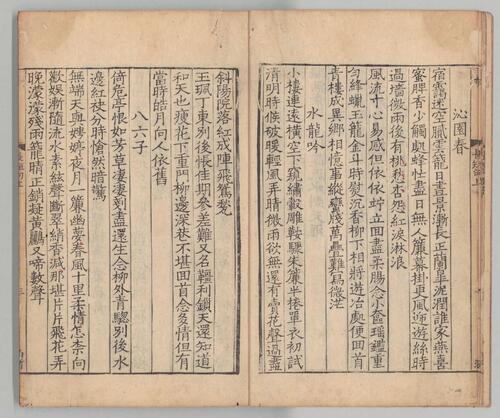 沁園春
宿靄迷空膩雲籠日晝景漸長正蘭皐泥潤誰家燕喜
蜜脾香少觸處蜂忙盡日無人簾幕掛更風遞遊絲時
過墻微雨後有桃愁杏怨紅淚淋浪
風流寸心易感但依依竚立回盡柔腸念小奩瑶鑑重
勻絳蠟玉龍金斗時熨沉香柳下相將遊冶處便回首
青樓成異鄉相憶事縱蠻牋萬疊難寫微茫
水龍吟
小樓連遠橫空下窺繡轂雕鞍驟朱簾半捲單衣初試
清明時候破暖輕風弄晴微雨欲無還有賣花聲過盡
斜陽院落紅成陣飛鴛甃
玉珮丁東別後悵佳期參差難又名韁利鎖天還知道
和天也瘦花下重門柳邊深巷不堪回首念多情但有
當時皓月向人依舊
八六子
倚危亭恨如芳草萋萋剗盡還生念柳外青驄別後水
邊紅袂分時愴然暗驚
無端天與娉婷夜月一簾幽夢春風十里柔情怎柰向
歡娛漸隨流水素絃聲斷翠綃香減那堪片片飛花弄
晚濛濛殘雨籠晴正銷凝黃鸝又啼數聲